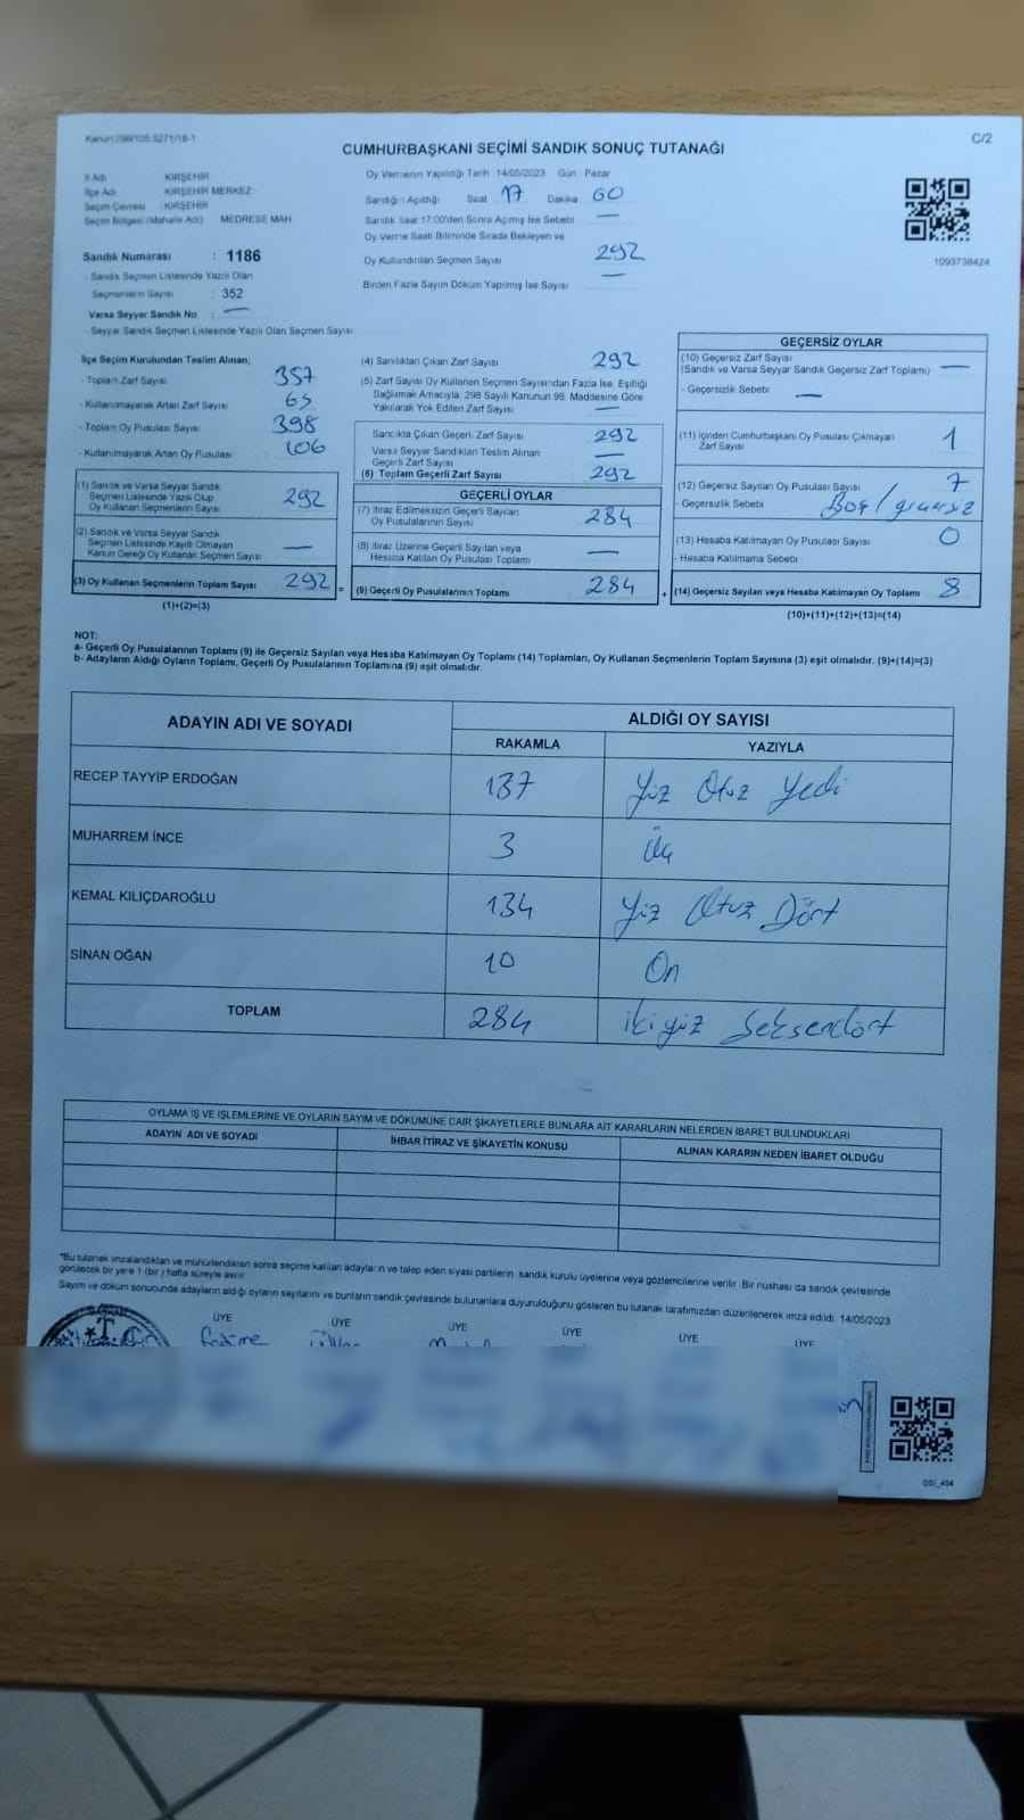 C/2
CUMHURBAŞKANI SEÇİMİ SANDIK SONUÇ TUTANAĞI
İl Adı KIRŞEHİR
İlçe Adı KIRŞEHİR MERKEZ
Seçim Çevresi : KIRŞEHİR
Seçim Bölgesi (Mahalle Adı) MEDRESE MAH
Sandık Numarası : 1186
- Sandık Seçmen Listesinde Yazılı Olan
Seçmenlerin Sayısı : 352
Varsa Seyyar Sandık No : —
- Seyyar Sandık Seçmen Listesinde Yazılı Olan Seçmen Sayısı
Oy Vermenin Yapıldığı Tarih 14/05/2023 Gün Pazar
Sandığın Açıldığı Saat 17 Dakika
Sandık Saat 17:00'den Sonra Açılmış İse Sebebi —
Oy Verme Saati Bitiminde Sırada Bekleyen ve
Oy Kullandırılan Seçmen Sayısı 292
Birden Fazla Sayım Döküm Yapılmış İse Sayısı —
1093738424
İlçe Seçim Kurulundan Teslim Alınan;
- Toplam Zarf Sayısı 357
- Kullanılmayarak Artan Zarf Sayısı 65
- Toplam Oy Pusulası Sayısı 398
- Kullanılmayarak Artan Oy Pusulası 106
(1) Sandık ve Varsa Seyyar Sandık
Seçmen Listesinde Yazılı Olup
Oy Kullanan Seçmenlerin Sayısı 292
(2) Sandık ve Varsa Seyyar Sandık
Seçmen Listesinde Kayıtlı Olmayan
Kanun Gereği Oy Kullanan Seçmen Sayısı —
(3) Oy Kullanan Seçmenlerin Toplam Sayısı 292 =
(1)+(2)=(3)
(4) Sandıktan Çıkan Zarf Sayısı 292
(5) Zarf Sayısı Oy Kullanan Seçmen Sayısından Fazla İse, Eşitliği
Sağlamak Amacıyla, 298 Sayılı Kanunun 98. Maddesine Göre
Yakılarak Yok Edilen Zarf Sayısı —
Sandıkta Çıkan Geçerli Zarf Sayısı 292
Varsa Seyyar Sandıktan Teslim Alınan
Geçerli Zarf Sayısı —
(6) Toplam Geçerli Zarf Sayısı 292
GEÇERLİ OYLAR
(7) İtiraz Edilmeksizin Geçerli Sayılan
Oy Pusulalarının Sayısı 284
(8) İtiraz Üzerine Geçerli Sayılan veya
Hesaba Katılan Oy Pusulası Toplamı —
(9) Geçerli Oy Pusulalarının Toplamı 284 +
GEÇERSİZ OYLAR
(10) Geçersiz Zarf Sayısı
(Sandık ve Varsa Seyyar Sandık Geçersiz Zarf Toplamı) —
- Geçersizlik Sebebi —
(11) İçinden Cumhurbaşkanı Oy Pusulası Çıkmayan
Zarf Sayısı 1
(12) Geçersiz Sayılan Oy Pusulası Sayısı 7
- Geçersizlik Sebebi Boş /
(13) Hesaba Katılmayan Oy Pusulası Sayısı 0
- Hesaba Katılmama Sebebi
(14) Geçersiz Sayılan veya Hesaba Katılmayan Oy Toplamı 8
(10)+(11)+(12)+(13)=(14)
NOT:
a- Geçerli Oy Pusulalarının Toplamı (9) ile Geçersiz Sayılan veya Hesaba Katılmayan Oy Toplamı (14) Toplamları, Oy Kullanan Seçmenlerin Toplam Sayısına (3) eşit olmalıdır. (9)+(14)=(3)
b- Adayların Aldığı Oyların Toplamı, Geçerli Oy Pusulalarının Toplamına (9) eşit olmalıdır.
ADAYIN ADI VE SOYADI ALDIĞI OY SAYISI
RAKAMLA YAZIYLA
RECEP TAYYİP ERDOĞAN 137 Yüz Otuz Yedi
MUHARREM İNCE 3 Üç
KEMAL KILIÇDAROĞLU 134 Yüz Otuz Dört
SİNAN OĞAN 10 On
TOPLAM 284 ikiyüz Seksendört
OYLAMA İŞ VE İŞLEMLERİNE VE OYLARIN SAYIM VE DÖKÜMÜNE DAİR ŞİKAYETLERLE BUNLARA AİT KARARLARIN NELERDEN İBARET BULUNDUKLARI
ADAYIN ADI VE SOYADI İHBAR İTİRAZ VE ŞİKAYETİN KONUSU ALINAN KARARIN NEDEN İBARET OLDUĞU
"Bu tutanak imzalandıktan ve mühürlendikten sonra seçime katılan adayların ve talep eden siyasi partilerin sandık kurulu üyelerine veya gözlemcilerine verilir. Bir nushası da sandık çevresinde
görülecek bir yere 1 (bir) hafta süreyle asılır
Sayım ve döküm sonucunda adayların aldığı oyların sayılarını ve bunların sandık çevresinde bulunanlara duyurulduğunu gösteren bu tutanak tarafımızdan düzenlenerek imza edildi. 14/05/2023
ÜYE ÜYE ÜYE ÜYE ÜYE ÜYE
Fatime